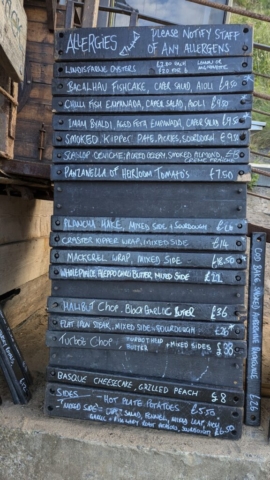 ALLERGIES PLEASE NOTIFY STAFF
OF ANY ALLERGENS
LINDISFARNE OYSTERS
BACALHAU FISHCAKE, CAPER SALAD, AIOLI £9.50
CHILLI FISH EMPANADA, CAPER SALAD, AIOLI £9.50
IMAM BYALDI, AGED FETA EMPANADA, CAPER SALAD £9.50
SMOKED KIPPER PATE, PICKLES, SOURDOUGH £9.50
SCALLOP CEVICHE, PICKLED CELERY, SMOKED ALMOND,
PANZANELLA OF HEIRLOOM TOMATO'S £7.50
PLANCHA HAKE, MIXED SIDE & SOURDOUGH
CRASTER KIPPER WRAP, MIXED SIDE £14
MACKEREL WRAP, MIXED SIDE
WHOLE PLAICE, ALEPPO CHILLI BUTTER, MIXED SIDE £22
HALIBUT CHOP, BLACK GARLIC BUTTER £36
FLAT IRON STEAK, MIXED SIDE & SOURDOUGH £26
TURBOT CHOP, BUTTER, MIXED SIDES £38
BASQUE CHEESECAKE, GRILLED PEACH £8
SIDES
HOT PLATE POTATOES £5.50
"MIXED SIDE" SALAD, FENNEL,
SOURDOUGH £6.50
COD BAKE
£26